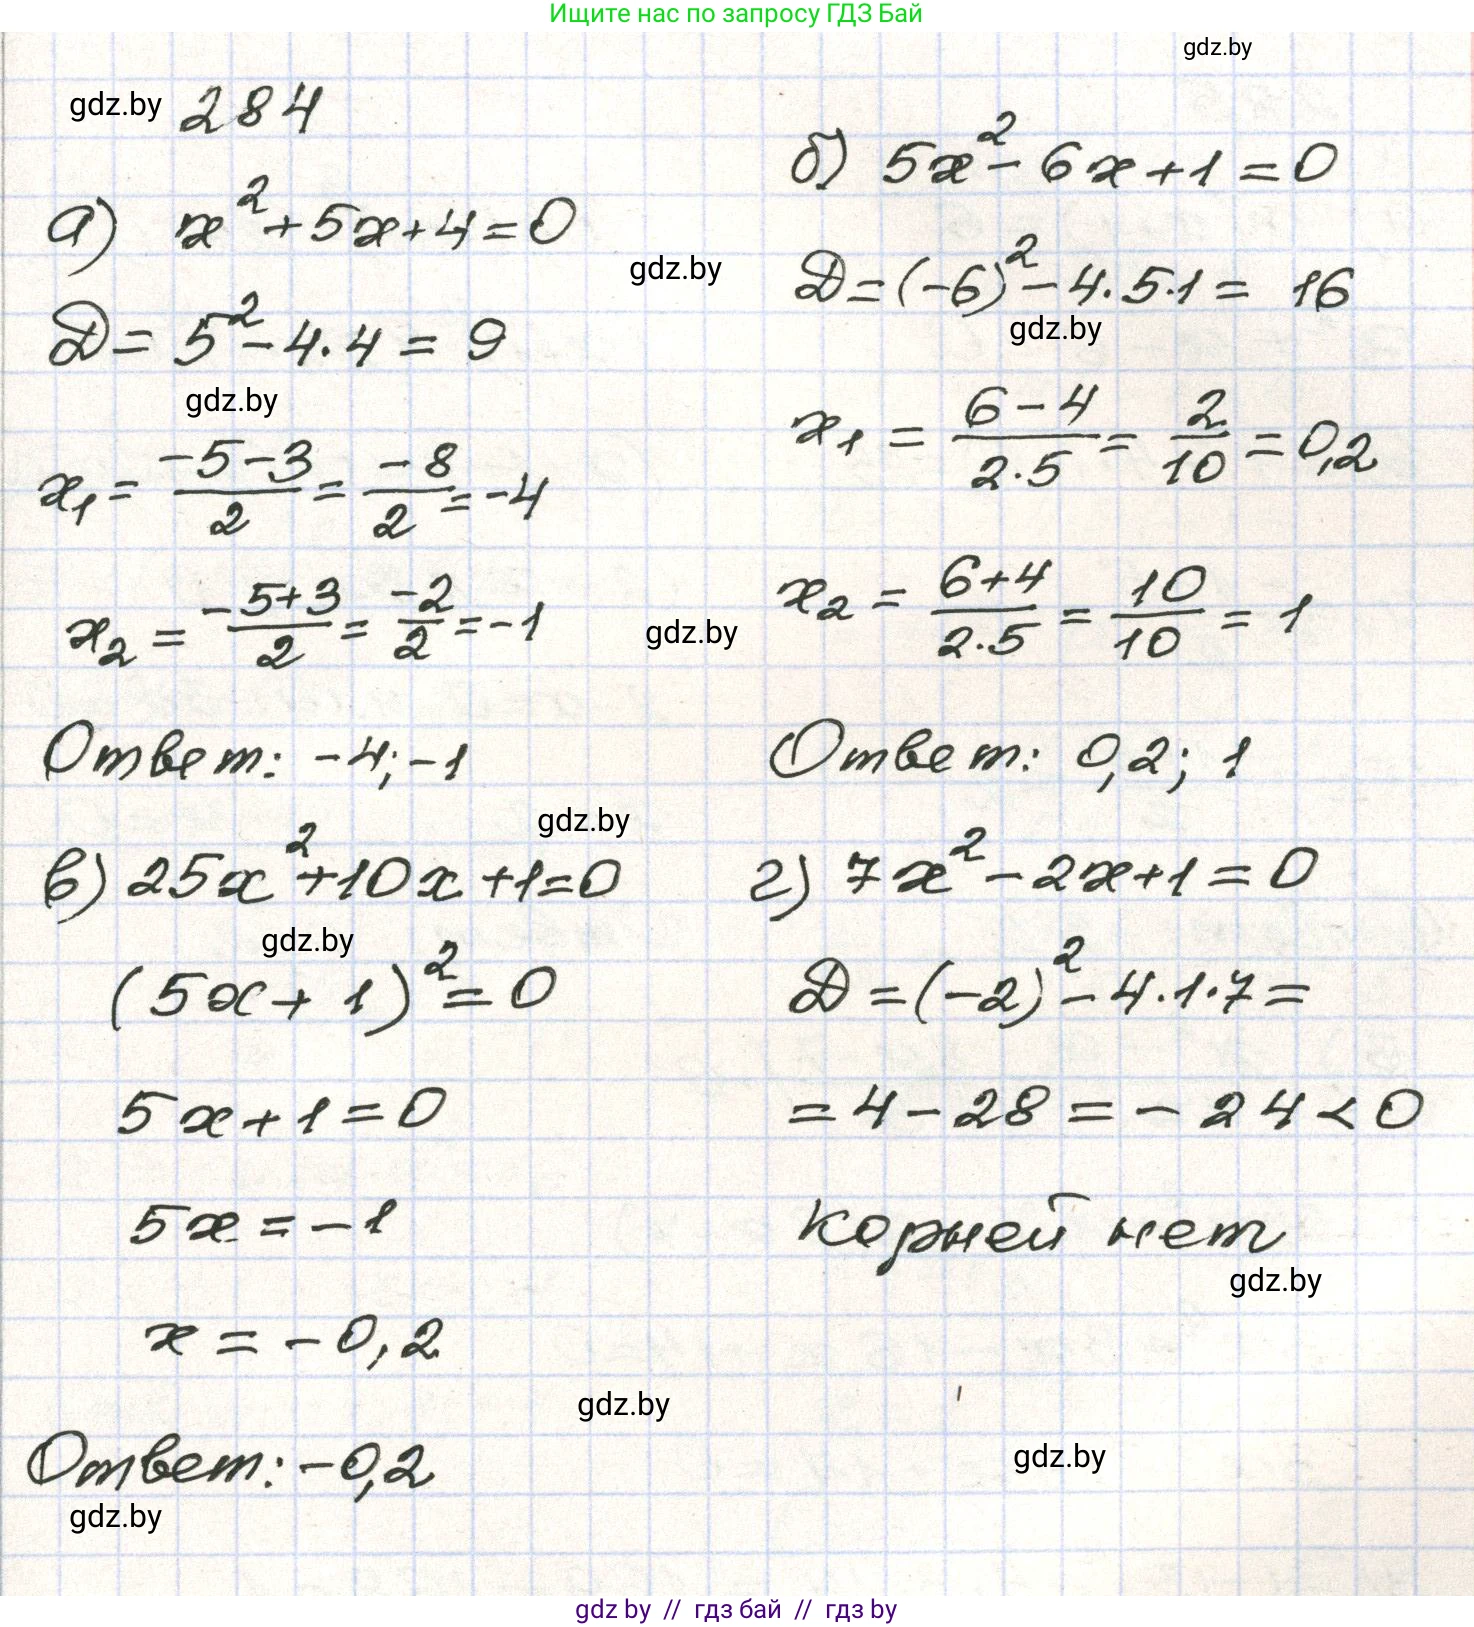 Ищите нас по запросу ГДЗ Бай
gdz.by
gdz.by 284
а) x² + 5x + 4 = 0
gdz.by
D = 5² - 4·4 = 9
gdz.by
x₁ = (-5-3)/2 = -8/2 = -4
x₂ = (-5+3)/2 = -2/2 = -1
gdz.by
Ответ: -4; -1
б) 5x² - 6x + 1 = 0
D = (-6)² - 4·5·1 = 16
gdz.by
x₁ = (6-4)/(2·5) = 2/10 = 0,2
x₂ = (6+4)/(2·5) = 10/10 = 1
Ответ: 0,2; 1
gdz.by
в) 25x² + 10x + 1 = 0
gdz.by
(5x + 1)² = 0
5x + 1 = 0
5x = -1
x = -0,2
gdz.by
Ответ: -0,2
gdz.by
г) 7x² - 2x + 1 = 0
D = (-2)² - 4·1·7 =
= 4 - 28 = - 24 < 0
корней нет
gdz.by
gdz.by
gdz by // гдз бай // гдз by